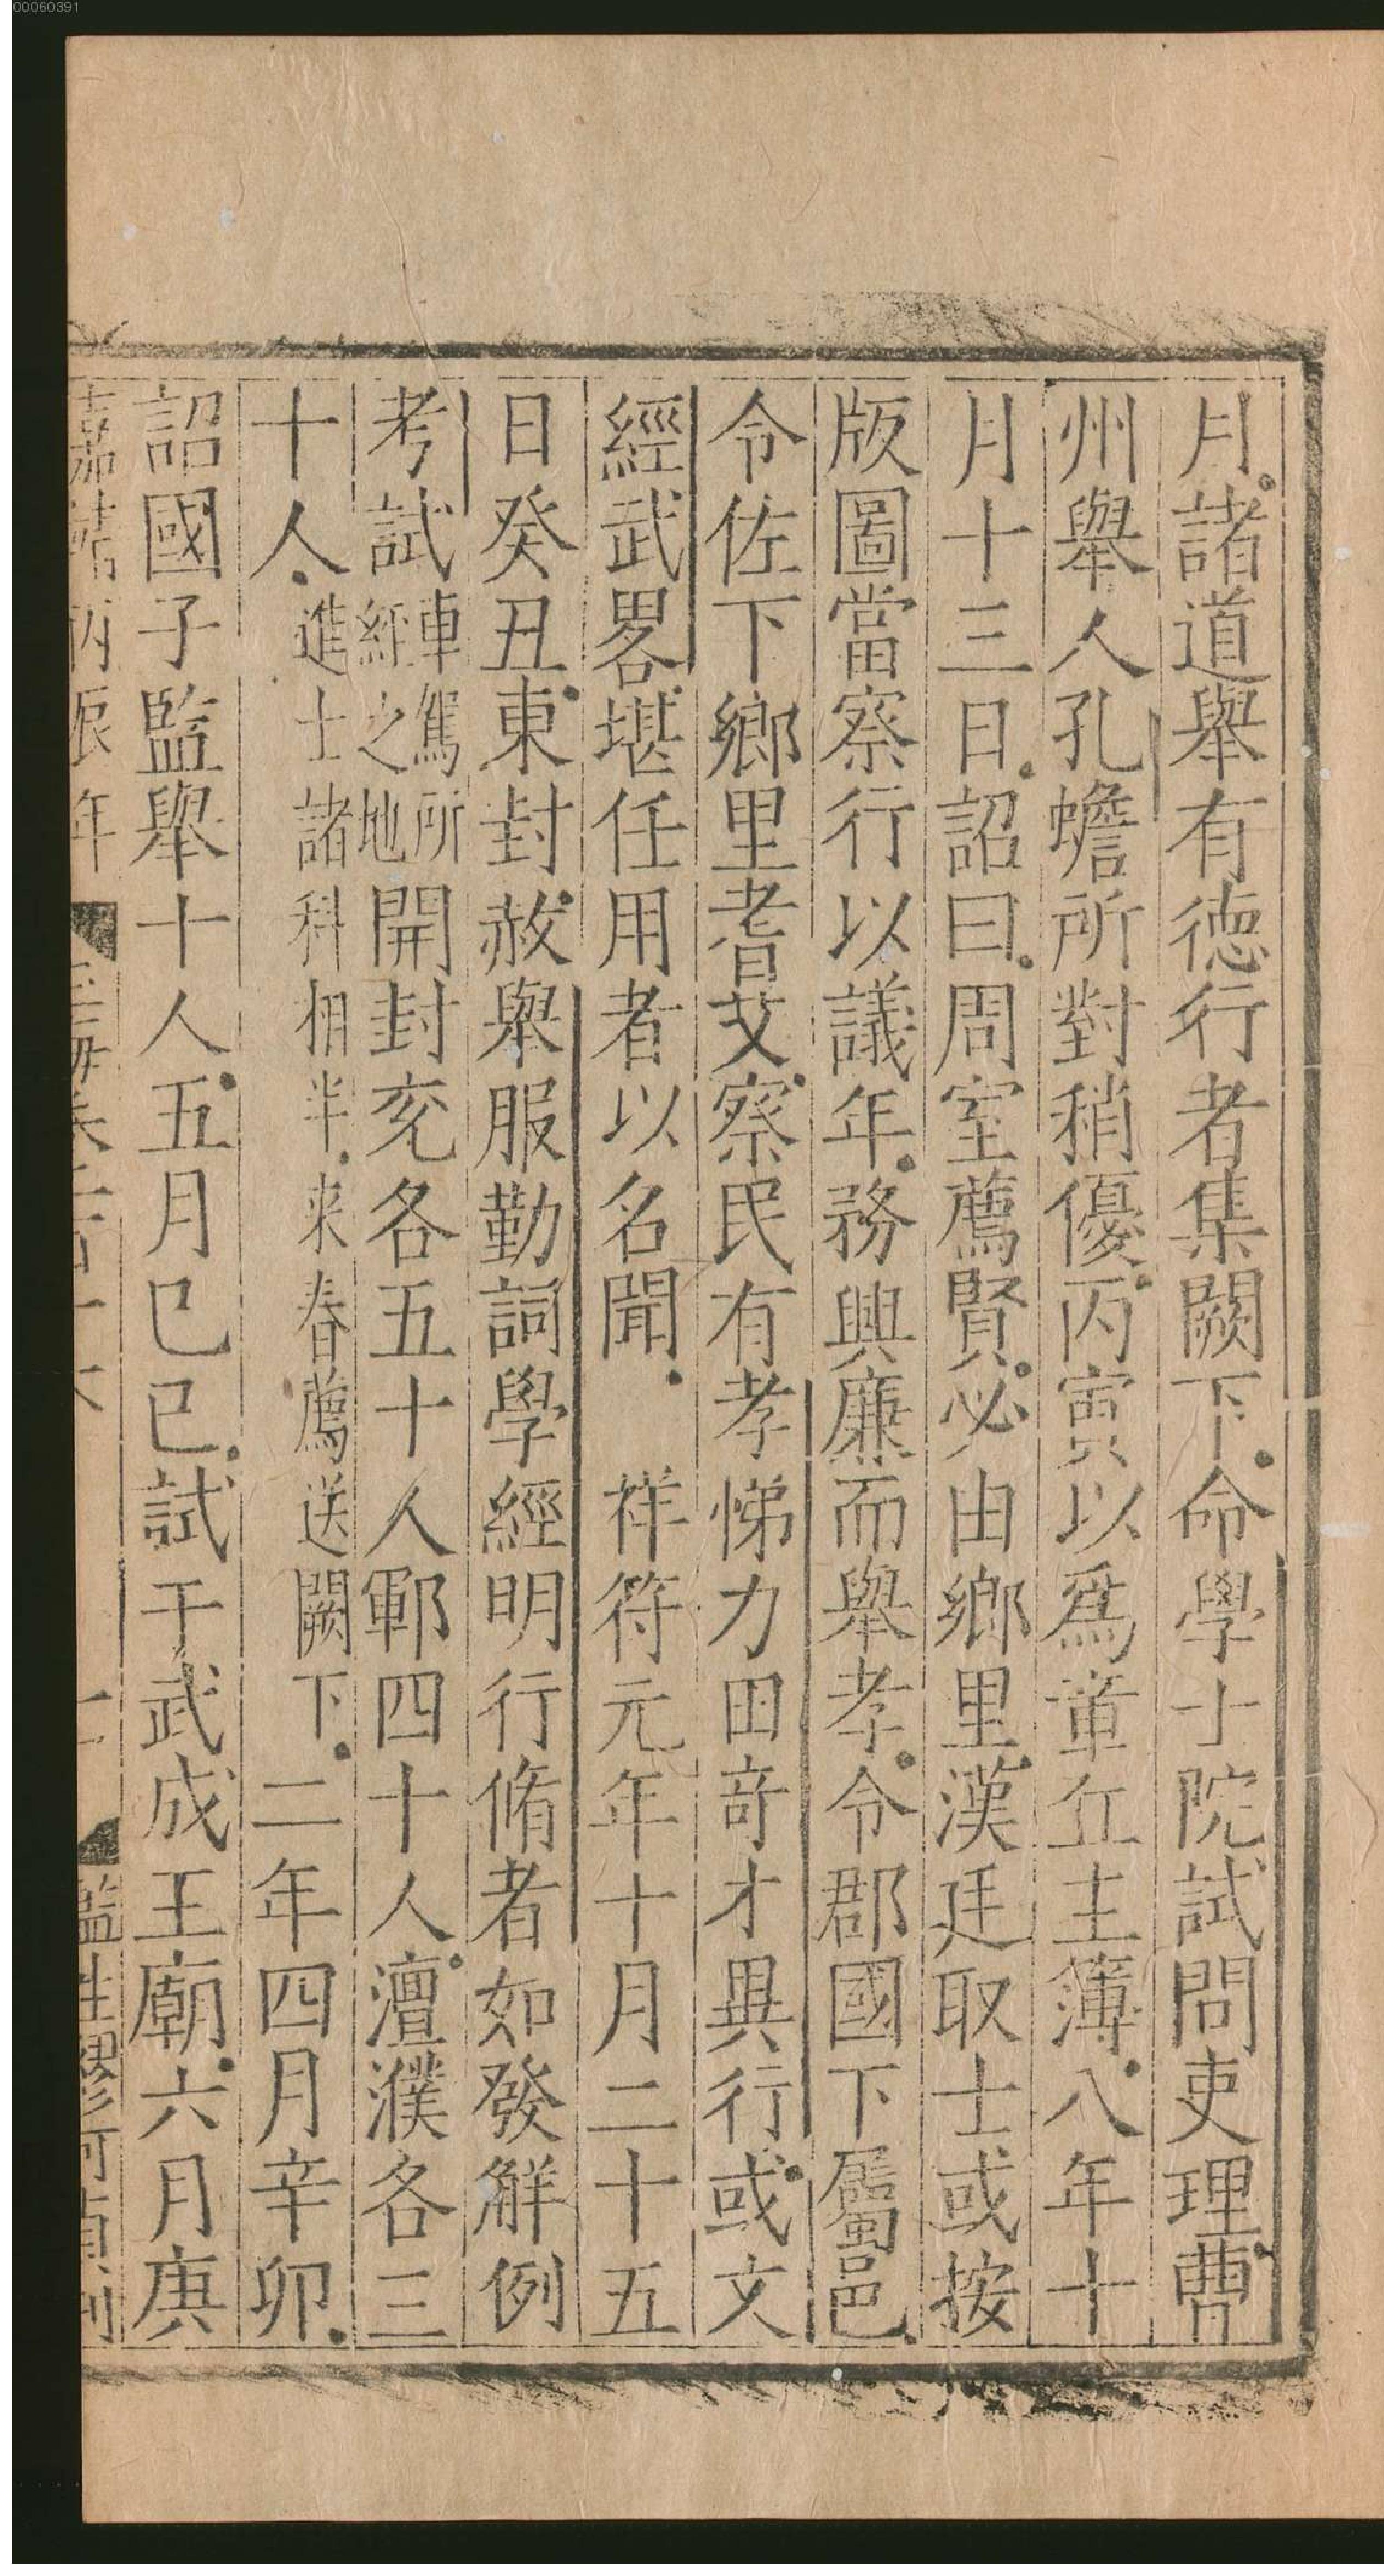 00060391
月諸道舉有德行者集闕下命學士院試問吏理曹
州舉人孔蟾所對稍優丙寅以爲章丘主簿八年十
月十三日詔曰周室薦賢必由鄉里漢廷取士或按
版圖當察行以議年務興廉而舉孝令郡國下屬邑
令佐下鄉里耆艾察民有孝悌力田竒才異行或文
經武畧堪任用者以名聞　祥符元年十月二十五
日癸丑東封赦舉服勤詞學經明行脩者如發解例
考試車駕所經之地開封兖各五十人鄆四十人澶濮各三
十人進士諸科相半来春薦送闕下二年四月辛卯
詔國子監舉十人五月己巳試于武成王廟六月庚
嘉靖丙辰年
玉海卷一百一十六
監生繆可貞刊